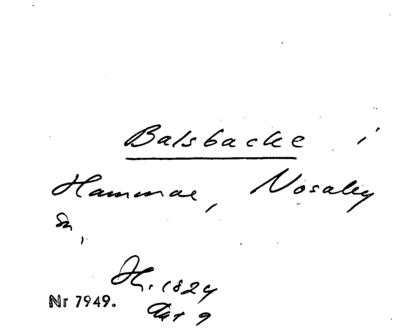 Balsbacke i
Hammar, Nosaby
sn,
1824
Akt 9
Nr 7949.